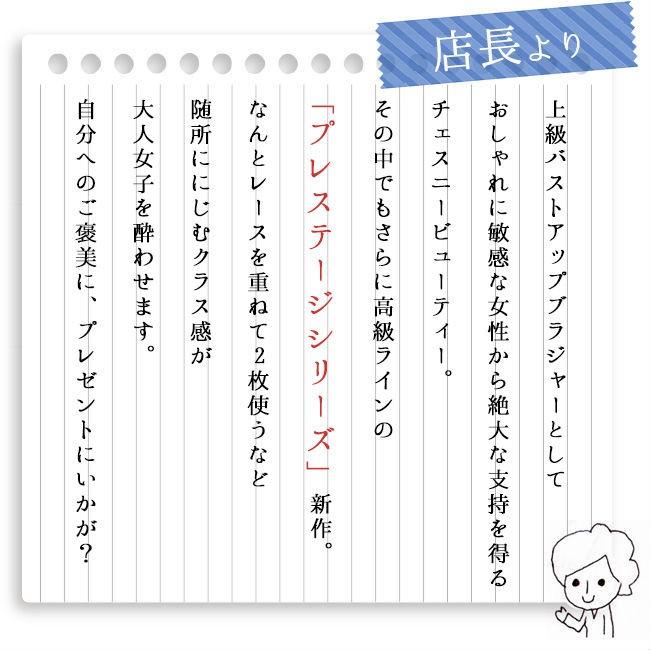 店長より
上級バストアップブラジャーとして
おしゃれに敏感な女性から絶大な支持を得る
チェスニービューティー。
その中でもさらに高級ラインの
「プレステージシリーズ」新作。
なんとレースを重ねて2枚使うなど
随所ににじむクラス感が
大人女子を酔わせます。
自分へのご褒美に、プレゼントにいかが？